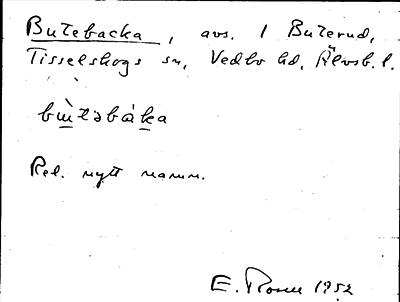 Butebacka, avs. 1 Buterud,
Tisselskogs sn, Vedbo hd, Älvsb. l.
bɯ̀təbáka
Rel. nytt namn.
E. Rosen 1952